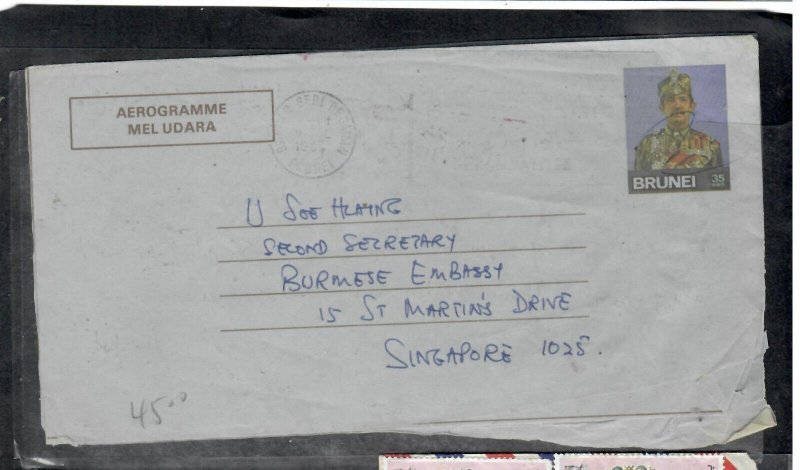 AEROGRAMME
MEL UDARA
BRUNEI 35
U SOE HLAING
SECOND SECRETARY
BURMESE EMBASSY
15 ST MARTIN'S DRIVE
SINGAPORE 1025.
45.00